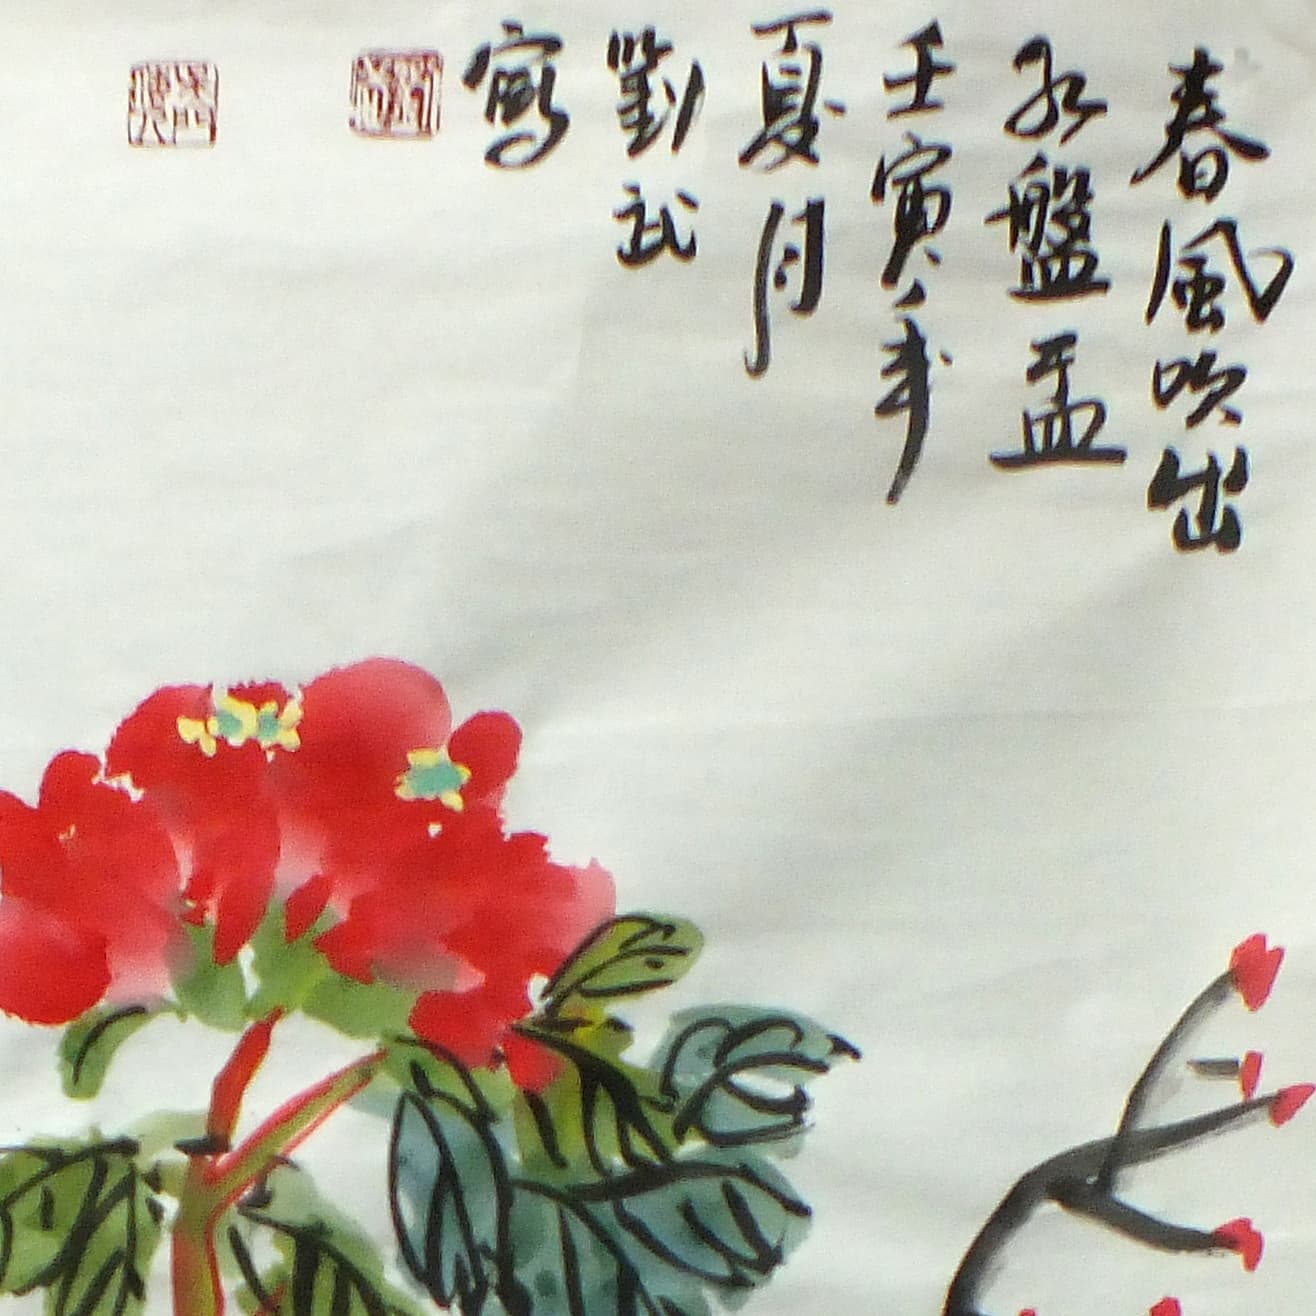 春風吹出
水盤盂
壬寅年
夏月
劉武
寫